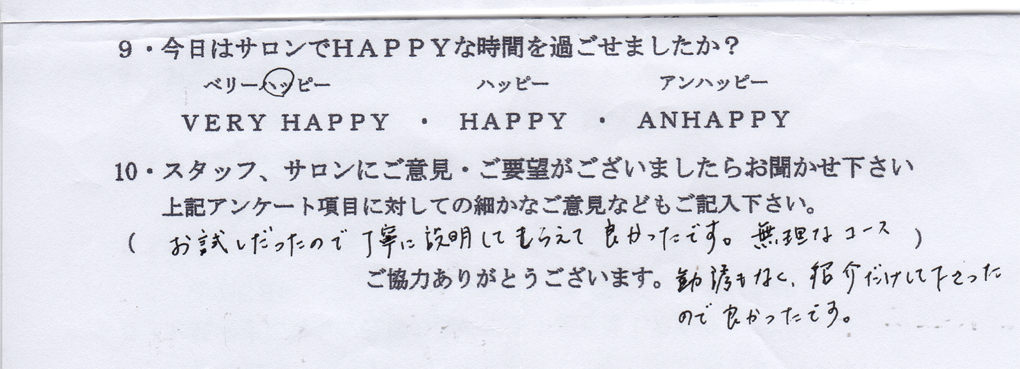 9・今日はサロンでHAPPYな時間を過ごせましたか?
ベリーハッピー ハッピー アンハッピー
VERY HAPPY ・ HAPPY ・ ANHAPPY
10・スタッフ、サロンにご意見・ご要望がございましたらお聞かせ下さい
上記アンケート項目に対しての細かなご意見などもご記入下さい。
( お試しだったので丁寧に説明してもらえて良かったです。無理なコース )
ご協力ありがとうございます。勧誘もなく、紹介だけして下さった
ので良かったです。